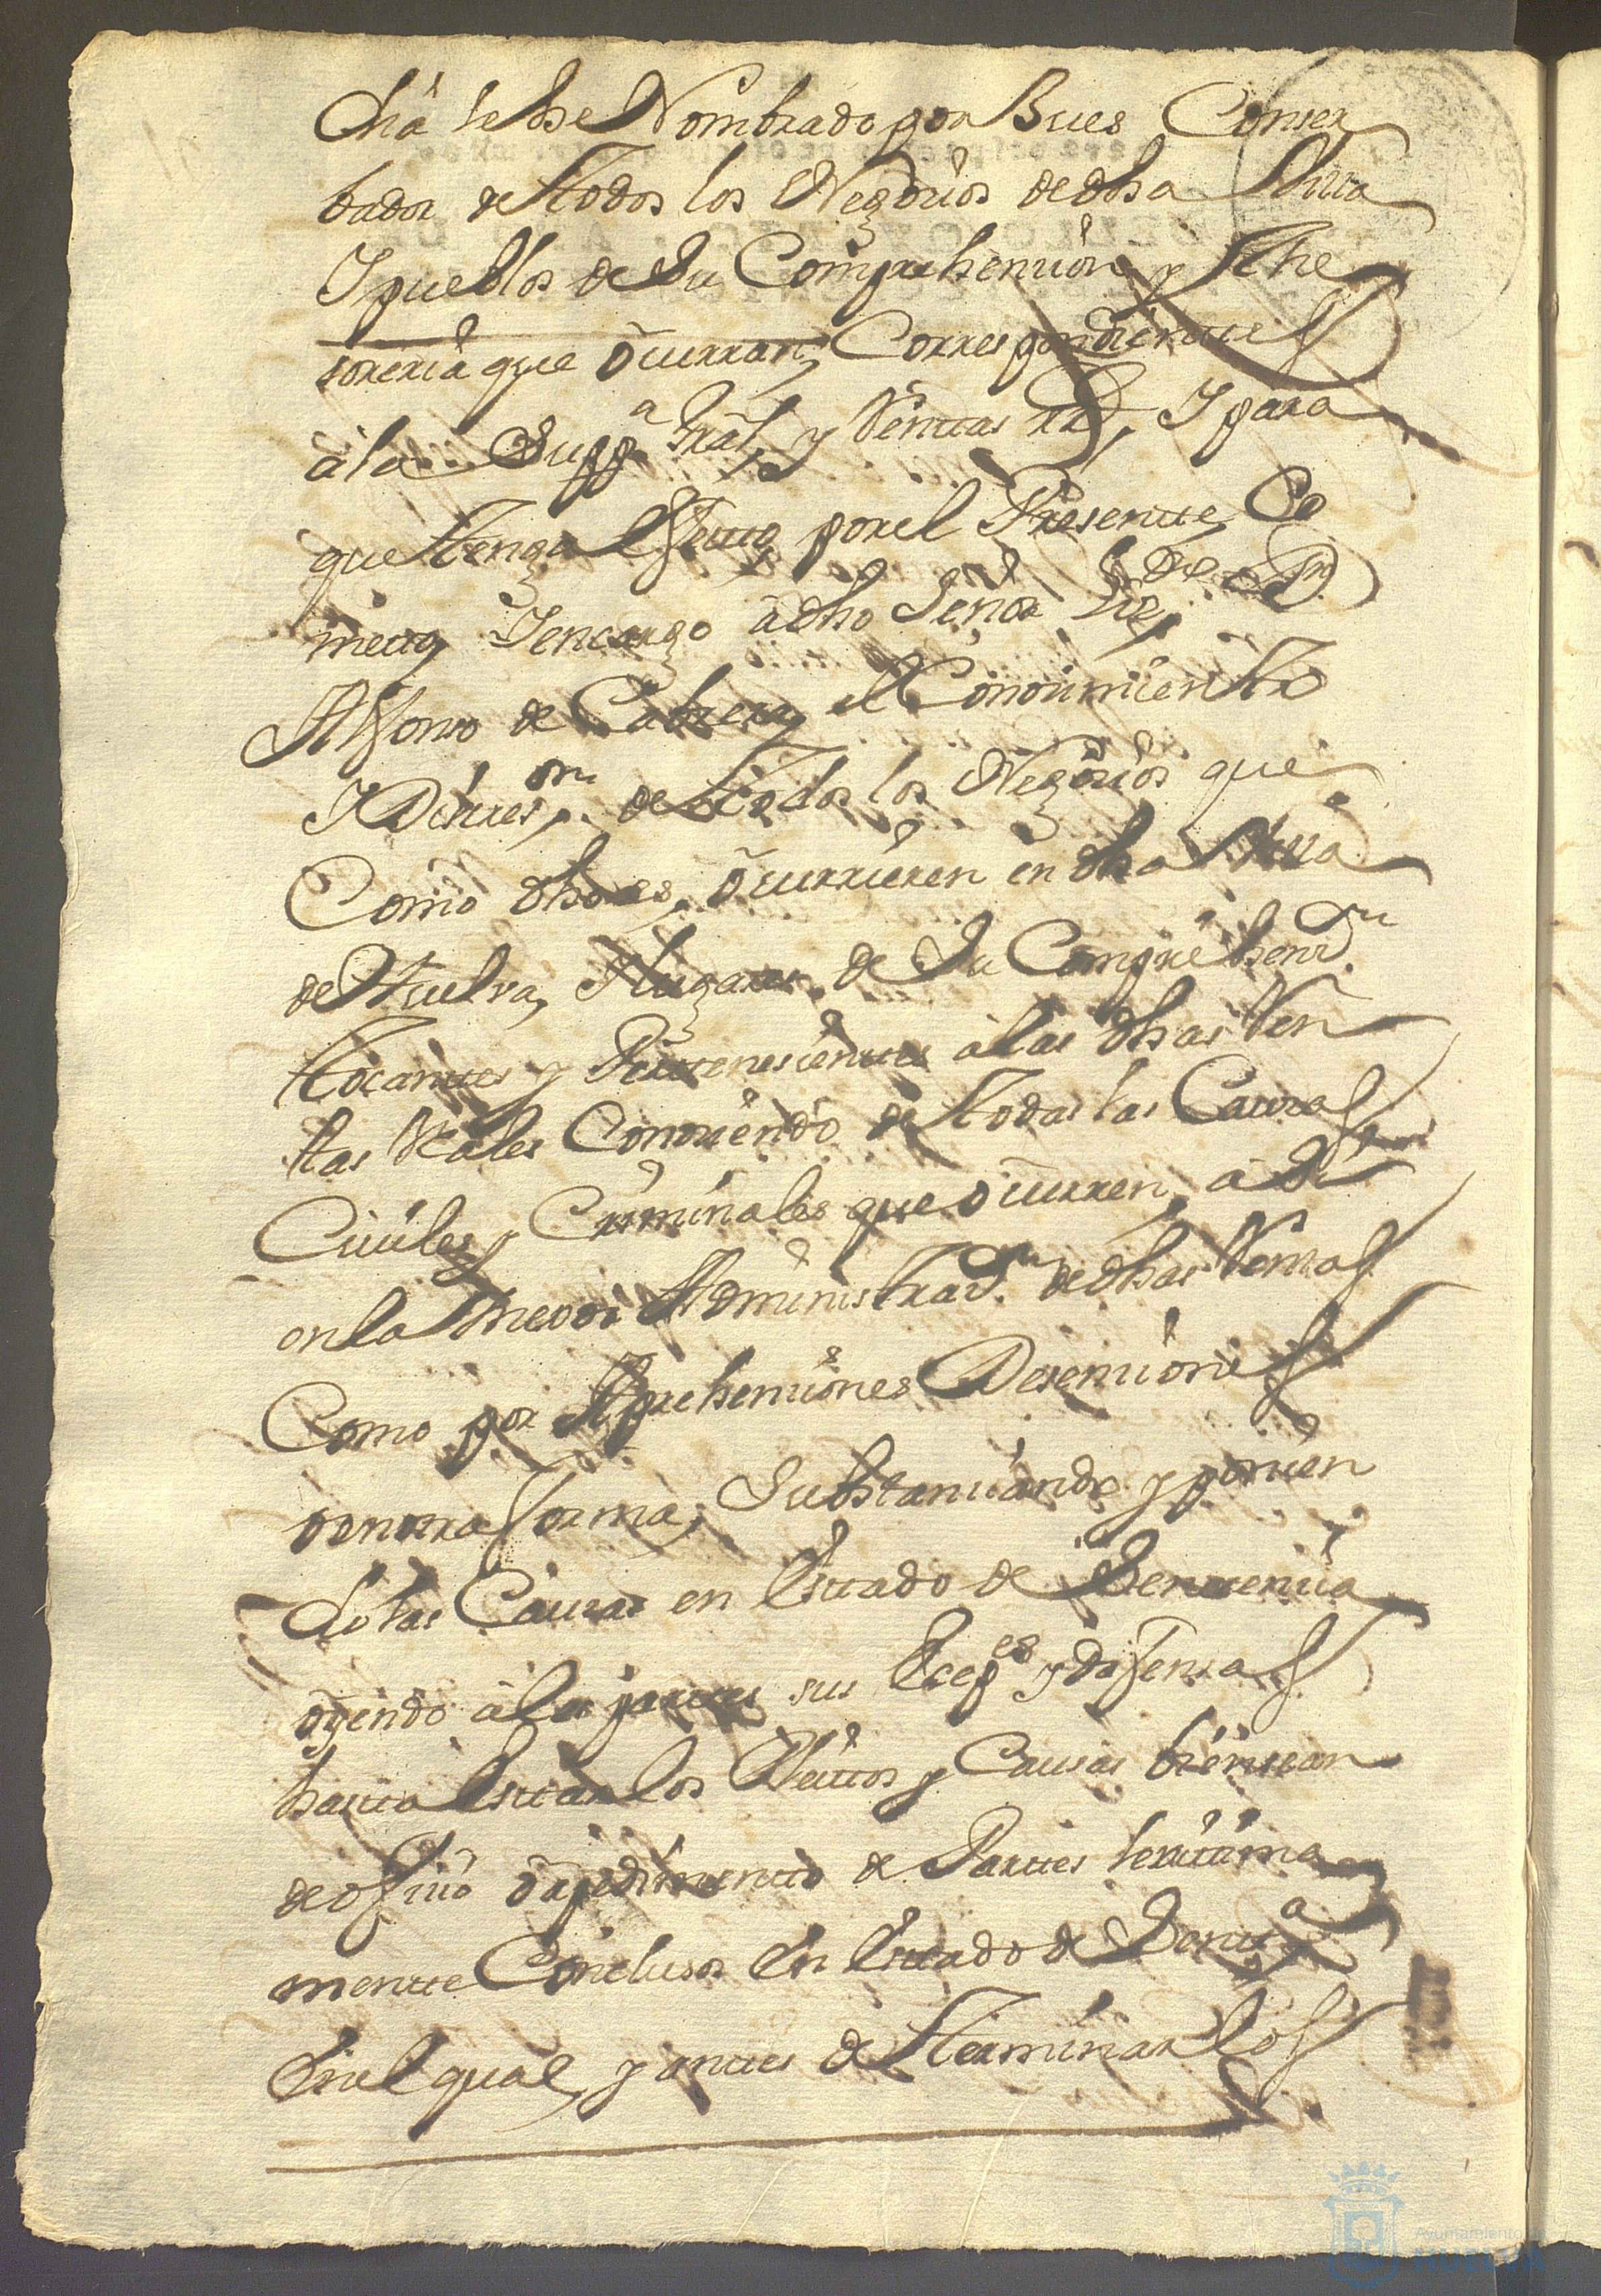 cha le he Nombrado por Jues Conser
bador de todos los Negocios de dha Villa
Y pueblos de Su Comprehencion y The
soreria que ocurran, Correspondientes
à la Supp.ª Gral, y Rentas Rs, Y para
que tenga efecto por el Presente Co
meto Y encargo à dho Señor Lizdo Dn
Alfonso de Cabrera, el Conocimiento
Y Direcson de todos los Negocios que
Como dho es, ocurrieren en dha Villa
de Huelva, Y lugares de Su Comprehensn
tocantes y Pertenesientes à las dhas Ren
tas Reales Conociendo de todas las Causas
Civiles y Criminales que ocurren, à Si
en la mexor Administrasn de dhas Rentas
Como por Aprehenciones Desenciones
o en otra forma, Substanciando y ponien
do las Causas en Estado de Sentencia
oyendo à las partes sus Ecepes y defensas
hasta Estar los Pleitos y Causas bien sean
de oficio o a pedimento de Partes lexitima
mente Conclusos En Estado de Sentª
En el qual, y antes de terminarlos
Ayuntamiento de
HUELVA